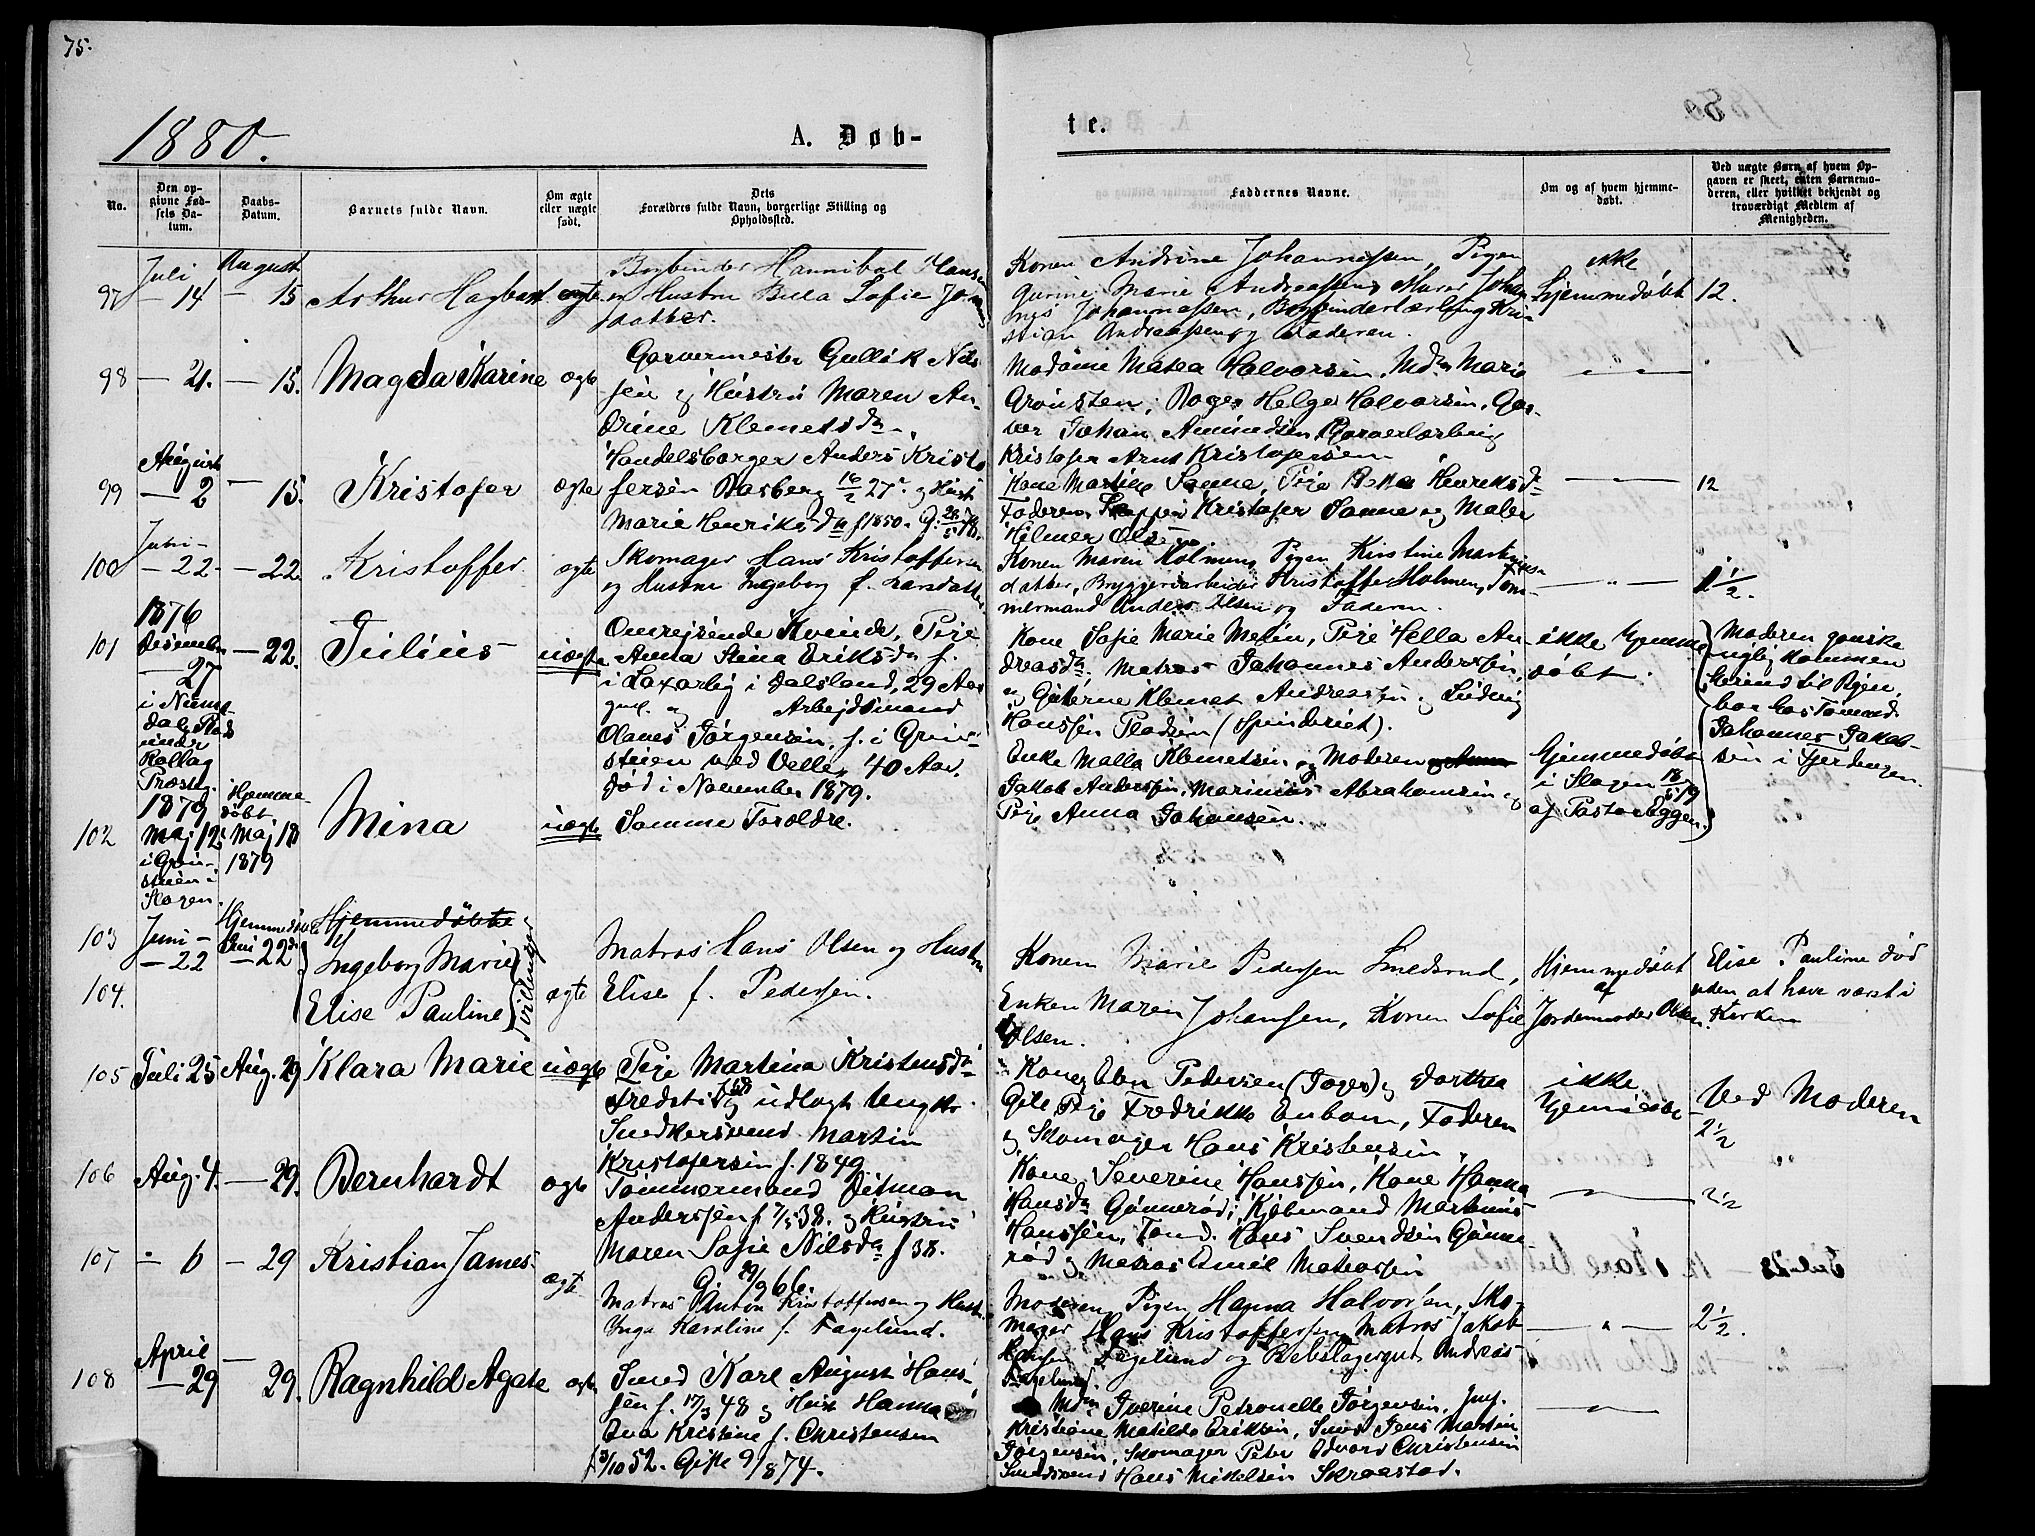 75.
1880.
A. Døb-
te.
No.
Den op-
givne Fød-
sels Da-
tum.
Daabs-
Datum.
Barnets fulde Navn.
Om ægte
eller uægte
født.
Dets
Forældres fulde Navn, borgerlige Stilling og
Opholdssted.
Faddernes Navne.
Om og af hvem hjemme-
døbt.
Ved uægte Børn af hvem Op-
gaven er skeet, enten Barnemo-
deren, eller hvilket bekjendt og
troværdigt Medlem af
Menigheden.
97
Juli
— 14
August
— 15
Arthur Hagbart
ægte
Bogbinder Hannibal Hansen
og Hustru Sofie
datter.
Konen Andrine Johannessen, Pigen
Marie Andreassen, Murer Johan
nes Johannessen, Bogbinderlærling Kri-
stian Andreassen og Faderen.
ikke
hjemmedøbt
12.
98
— 21.
— 15.
Magda Karine
ægte
Garvermester Gulløk Nils
sen og Hustru Maren An-
drine Klemetsdr.
Madame Matea Halvorsen, Mdm Marie
Gronsten, Bager Helge Halvorsen, Gar-
ver Johan Amundsen, Garverlærling
Kristofer Arnt Kristofersen
— " —
99
August
— 2
— 15.
Kristofer
ægte
Handelsborger Anders Kristo
fersen Aasberg 16/2 27. og Hust
Marie Henriksdr f 1850. G. 28/5 78.
Kone Martine Sanne, Pije Henriksdr
Faderen, Kristofer Sanne og Maler
Hilmer Olsen
12
100
Juni
— 22
— 22
Kristoffer
ægte
Skomager Hans Kristoffersen
og Hustru Ingeborg f. Larsdatter
Konen Maren Holmen, Pigen Kirstine Martinsen
datter, Bryggeriarbeider Kristoffer Holmen, Tøm-
mermand Anders Olsen og Faderen.
— " —
1 1/2.
101
1876
Desember
— 27
i Num-
dal, Stad
under
Rollag
Præstg.
— 22.
Julius
uægte
Omrejsende Kvinde, Pije
Anna Stina Eriksdr f.
i Laxarby i Dalsland, 29 Aar
gml. og Arbejdsmand
Olaves Jørgensen, f. i Grin-
stuen ved Velle, 40 Aar.
død i November 1879.
Kone Sofie Marie Melin, Pije Hella An
dreasdr. Matros Johannes Anderssen,
og Gutterne Klemet Andreassen og Ludvig
Hanssen Pladsen (Spinderiet).
ikke hjemme
døbt.
Moderen ganske
nylig kommen
herind til Byen,
bor hos Tømmd.
Johannes Jakob-
sen i Fjerdingen.
102
1879
Maj 12.
i Grin-
stuen i
Slagen.
Hjemme-
døbt
Maj 18
1879
Mina
uægte
Samme Foreldre.
Enke Malla Klemetsen og Moderen
Jakob Anderssen, Marinius Abrahamsen og
Pije Anna Johansen.
Hjemmedøbt
i Slagen 18/5 79
af Pastor Eggen.
103
Juni —
— 22
Hjemmedøbt
Juni
— 22d.
Hjemmedøbte
Ingeborg Marie
104.
Elise Pauline
tvillinger
ægte
Matros Hans Olsen og Hustru
Elise f. Pedersen.
Konen Marie Pedersen Smedsrud,
Enken Maren Johansen, Konen Sofie
Olsen.
Hjemmedøbt
af
Jordemoder Olsen.
Elise Pauline død
uden at have været i
Kirken
105
Juli 25
Aug. 29
Klara Marie
uægte
Pije Martina Kristensdr
Fredst. og udlagt Ungkr.
Snedkersvend Martin
Kristofersen f. 1849.
Kone Elen Pedersen (Joges) og Dorthea
Pije Fredrikke Enbom, Faderen
og Skomager Hans Kristensen.
ikke
hjemmedøbt
Ved Moderen
2 1/2
106
Aug. 4.
— 29.
Bernhardt
ægte
Tømmermand Ditman
Anderssen f 7/5 38. og Hustru
Maren Sofie Nilsdr f 38.
G. 29/9 66.
Kone Severine Hanssen, Kone Hanna
Hansdr Gunnerød, Kjøbmand Martinus
Hanssen, Tømd. Hans Svendsen Gunne-
rød og Matros Emil Mathiassen
2 1/2
107
— 6
— 29
Kristian James.
ægte
Matros Anton Kristoffersen og Hustr.
Inga Karoline f. Fagelund.
Moderen, Pigen Hanna Halvorsen, Sko-
mager Hans Kristoffersen, Matros Jakob
Hansen Fagelund og Rebslagergut Andreas
Fagelund.
— " —
2 1/2.
108
April
— 29
—
29.
Ragnhild Agate
ægte
Smed Karl August Hans-
sen f. 17/3 48 og Hust Hanna
Eva Kristine f. Christensen
f 3/10 52. Gift 9/8 74.
Mdm Iverine Petronelle Jørgensen, Jmf.
Kristiane Matilde Eriksen, Smed Jens Martin
Jørgensen, Skomager Peter Edvard Christensen
Smedsvend Hans Mikkelsen Skraastad.